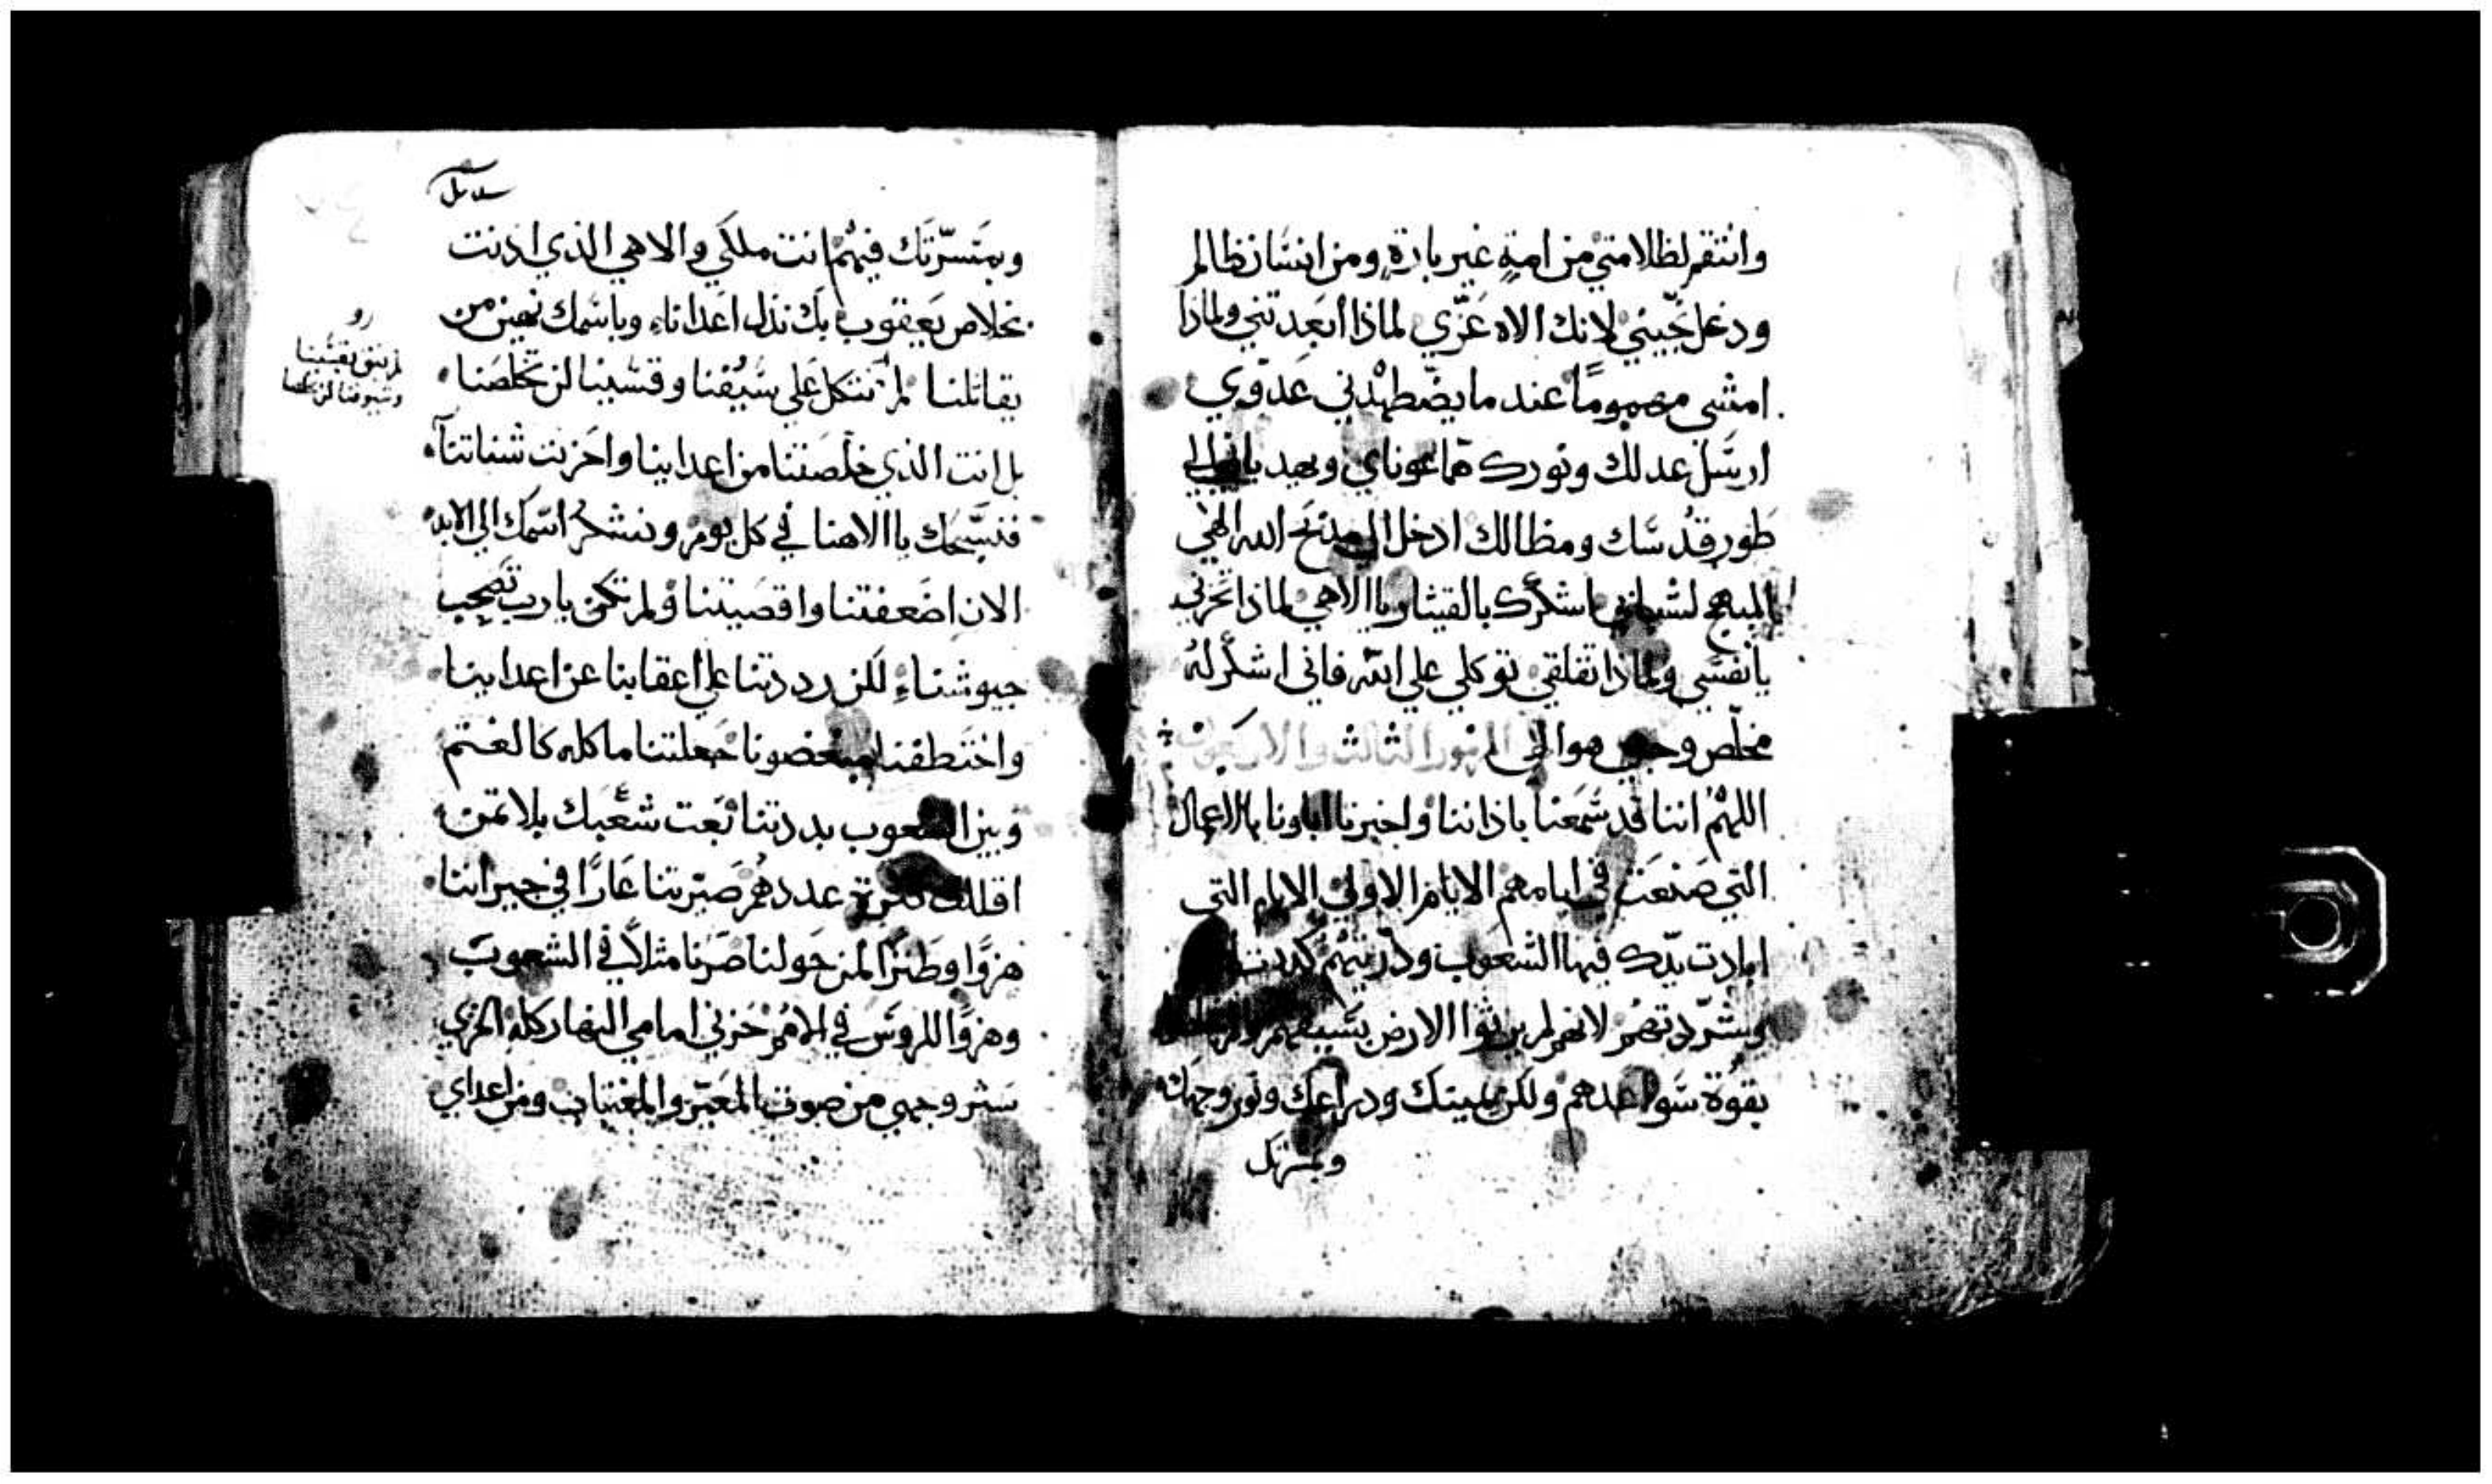 وانتقم لظلامتي من امة غير بارة ومن انسان ظالم
ودغل نجيني لانك الاه عزي لماذا أبعدتني ولماذا
امشي مهموماً عندما يضطهدني عدوي
ارسل عدلك ونورك هما عوناي وبهد
طور قدسك ومظالك ادخل الى مذبح الله الهي
المبهج لشبابي اشكرك بالقيثار ياالاهي لماذا تحزني
يانفسي ولماذا تقلقي توكلي علي الله فاني اشكر له
مخلص وجهي هو الهي المزمور الثالث والاربعون
اللهم اننا قد سمعنا باذاننا واخبرنا اباونا بالاعمال
التي صنعت في ايامهم الايام الاولي الايام التي
ابادت يدك فيها الشعوب وذريتهم
وشردتهم لانهم لم يرثوا الارض بسيفهم ولم
بقوة سواعدهم ولكن بيمينك ودراعك ونور وجهك
وبمسرتك
وبمسرتك فيهم انت ملكي والاهي الذي اذنت
بخلاص يعقوب بك نذل اعداناء وباسمك نهين من
يقاتلنا لم نتكل علي سيفنا وقسينا لن تخلصنا
بل انت الذي خلصتنا من اعداينا واخزيت شناتنا
فنسبحك ياالاهنا في كل يوم ونشكر اسمك الي الابد
الان اضعفتنا واقصيتنا ولم تكن يارب تصحب
جيوشناء لكن رددتنا علي اعقابنا عن اعداينا
واختطفنا مبغضونا جعلتنا ماكله كالغنم
وبين الشعوب بددتنا بعت شعبك بلا ثمن
اقللت كثرة عددهم صيرتنا عارًا في جيراننا
هزوًا وطنزا لمن حولنا صرنا مثلاً في الشعوب
وهزوًا للروس في الامم حزني امامي النهار كله الخزي
ستر وجهي من صوت المعير والمغتاب ومن اعداي
لم نثق بقسينا
وسيوفنا لن تخلصنا